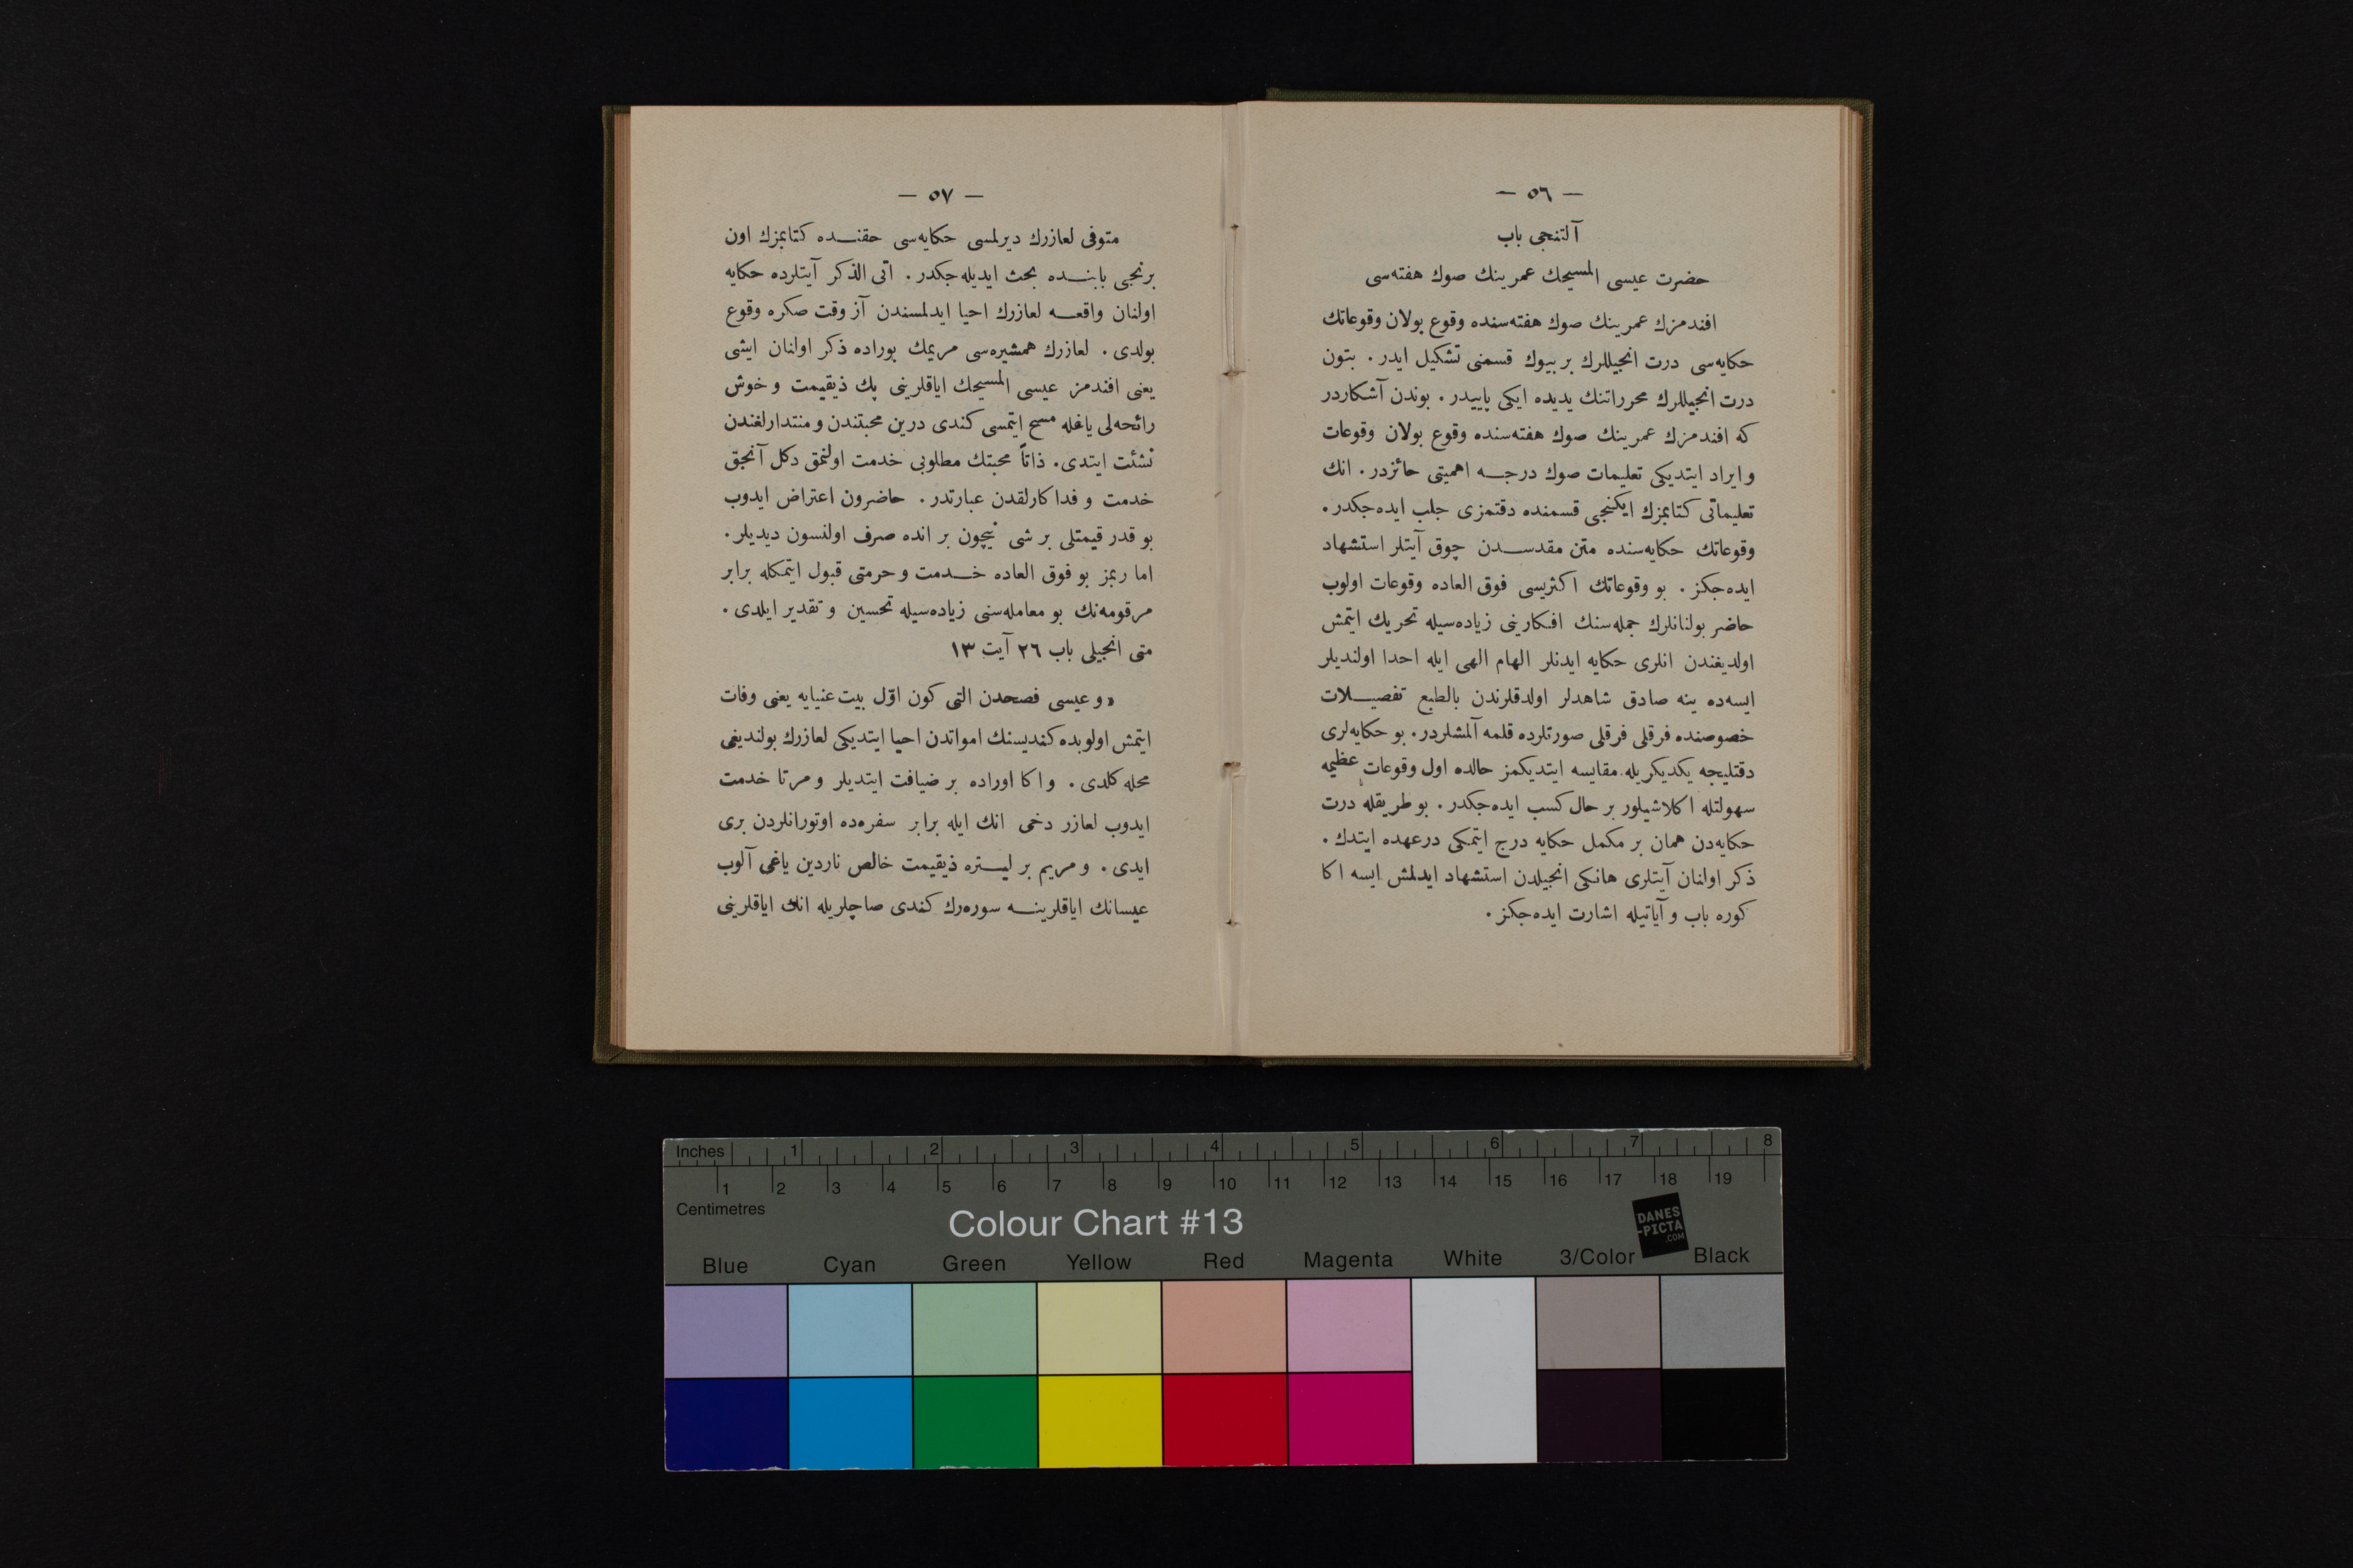 — ٥٦ —
آلتنجی باب
حضرت عیسی المسیحك عمرینك صوك هفته‌سی
افندمزك عمرینك صوك هفته‌سنده وقوع بولان وقوعاتك
حکایه‌سی درت انجیللرك بر بیوك قسمنی تشکیل ایدر . بتون
درت انجیللرك محرراتنك یدیده ایکی پاییدر . بوندن آشکاردر
که افندمزك عمرینك صوك هفته‌سنده وقوع بولان وقوعات
و ایراد ایتدیکی تعلیمات صوك درجــه اهمیتی حائزدر . انك
تعلیماتی کتابمزك ایکنجی قسمنده دقتمزی جلب ایده‌جکدر .
وقوعاتك حکایه‌سنده متن مقدســدن چوق آیتلر استشهاد
ایده‌جکز . بو وقوعاتك اکثریسی فوق العاده وقوعات اولوب
حاضر بولنانلرك جمله‌سنك افکارینی زیاده‌سیله تحریك ایتمش
اولدیغندن انلری حکایه ایدنلر الهام الهی ایله احدا اولندیلر
ایسه‌ده ینه صادق شاهدلر اولدقلرندن بالطبع تفصیــلات
خصوصنده فرقلی فرقلی صورتلرده قلمه آلمشلردر . بو حکایه‌لری
دقتلیجه یکدیکریله مقایسه ایتدیکمز حالده اول وقوعات عظیمه
سهولتله اکلاشیلور بر حال کسب ایده‌جکدر . بو طریقله درت
حکایه‌دن همان بر مکمل حکایه درج ایتمکی درعهده ایتدك .
ذکر اولنان آیتلری هانکی انجیلدن استشهاد ایدلمش ایسه اکا
کوره باب و آیاتیله اشارت ایده‌جکز .
— ٥٧ —
متوفی لعازرك دیرلمسی حکایه‌سی حقنــده کتابمزك اون
برنجی بابنــده بحث ایدیله‌جکدر . اتی الذکر آیتلرده حکایه
اولنان واقعــه لعازرك احیا ایدلمسندن آز وقت صکره وقوع
بولدی . لعازرك همشیره‌سی مریمك بوراده ذکر اولنان ایشی
یعنی افندمز عیسی المسیحك ایاقلرینی پك ذیقیمت و خوش
رائحه‌لی یاغله مسح ایتمسی کندی درین محبتندن و منتدارلغندن
نشئت ایتدی . ذاتاً محبتك مطلوبی خدمت اولنمق دکل آنجق
خدمت و فداکارلقدن عبارتدر . حاضرون اعتراض ایدوب
بو قدر قیمتلی بر شی نیچون بر انده صرف اولنسون دیدیلر .
اما ربمز بو فوق العاده خــدمت و حرمتی قبول ایتمکله برابر
مرقومه‌نك بو معامله‌سنی زیاده‌سیله تحسین و تقدیر ایلدی .
متی انجیلی باب ٢٦ آیت ١٣
« و عیسی فصحدن التی کون اوّل بیت عنیایه یعنی وفات
ایتمش اولوبده کندیسنك امواتدن احیا ایتدیکی لعازرك بولندیغی
محله کلدی . و اکا اوراده بر ضیافت ایتدیلر و مرتا خدمت
ایدوب لعازر دخی انك ایله برابر سفره‌ده اوتورانلردن بری
ایدی . و مریم بر لیــتره ذیقیمت خالص ناردین یاغی آلوب
عیسانك ایاقلرینــه سوره‌رك کندی صاچلریله انك ایاقلرینی
Inches 1 2 3 4 5 6 7 8
1 2 3 4 5 6 7 8 9 10 11 12 13 14 15 16 17 18 19
Centimetres
Colour Chart #13
DANES
-PICTA
.COM
Blue Cyan Green Yellow Red Magenta White 3/Color Black